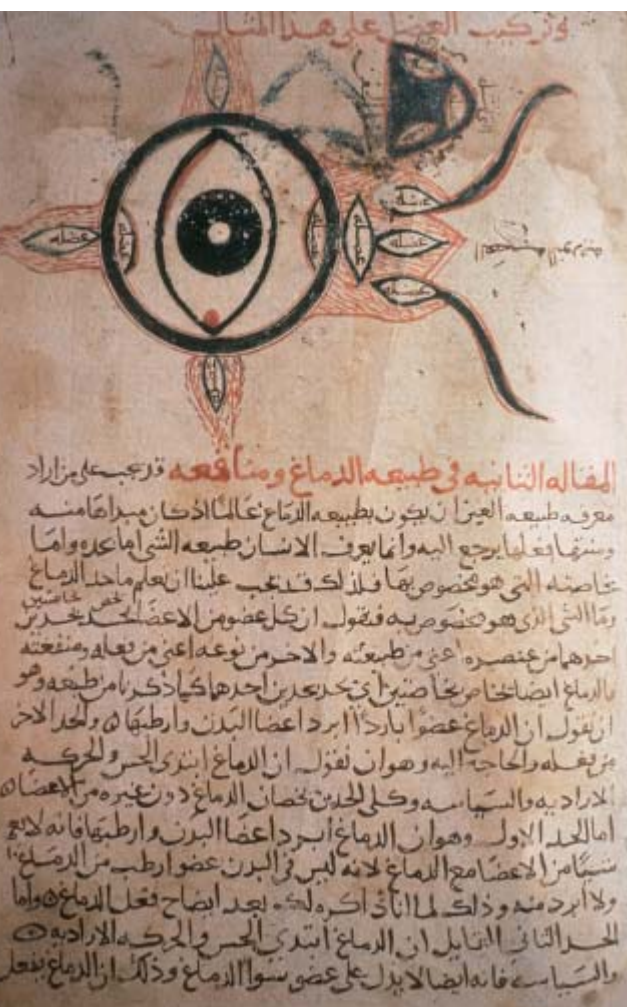 وتركيب العضل على هذا المثال
عضله
عضله
عضله
عضله
عضله
عضله
المقاله الثانيه فى طبيعه الدماغ ومنافعه قد يجب على من اراد
معرفه طبيعه العين ان يكون بطبيعه الدماغ عالما اذ كان مبداها منه
ومنتهى فعلها يرجع اليه وانما يعرف الانسان طبيعه الشى اما بحده واما
بخاصته التى هو مخصوص بها فلذلك قد يجب علينا ان نعلم ما حد الدماغ
وما الشى الذى هو مخصوص به فنقول ان كل عضو من الاعضا يحد بحدين
احدهما من عنصره اعنى من طبيعته والاخر من نوعه اعنى من فعله ومنفعته
فالدماغ ايضا بحد بحدين احدهما كما ذكرنا من طبيعه وهو
ان نقول ان الدماغ عضوا باردا ابرد اعضا البدن وارطبها والحد الاخر
من فعله والحاجه اليه وهو ان نقول ان الدماغ ابتدى الحس والحركه
الاراديه والسياسه وكلى الحدين يخصان الدماغ دون غيره من الاعضا
اما الحد الاول وهو ان الدماغ ابرد اعضا البدن وارطبها فانه لا يعم
شيا من الاعضا مع الدماغ لانه ليس فى البدن عضو ارطب من الدماغ
ولا ابرد منه وذلك لما انا ذاكره لك بعد ايضاح فعل الدماغ واما
الحد الثانى القايل ان الدماغ ابتدى الحس والحركه الاراديه
والسياسه فانه ايضا لا يدل على عضو سوا الدماغ وذلك ان الدماغ يفعل